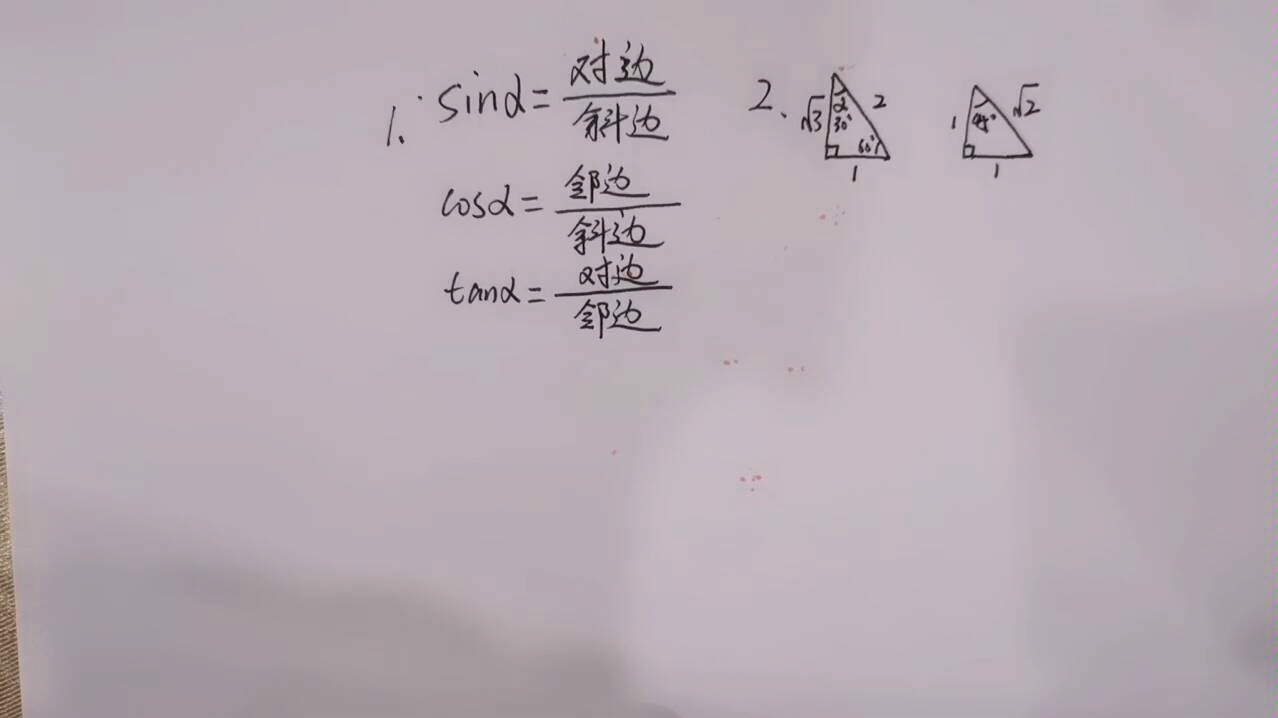 1. sinα = 对边/斜边
cosα = 邻边/斜边
tanα = 对边/邻边
2. √3 α 30° 2 60° 1
1 45° √2 1